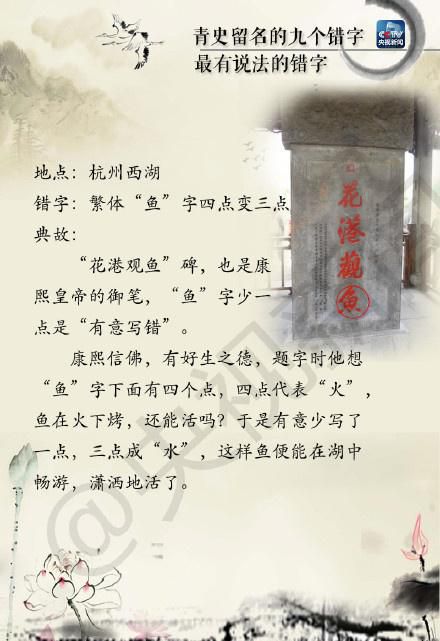 青史留名的九个错字
最有说法的错字
CCTV
央视新闻
地点：杭州西湖
错字：繁体“鱼”字四点变三点
典故：
“花港观鱼”碑，也是康
熙皇帝的御笔，“鱼”字少一
点是“有意写错”。
康熙信佛，有好生之德，题字时他想
“鱼”字下面有四个点，四点代表“火”，
鱼在火下烤，还能活吗？于是有意少写了
一点，三点成“水”，这样鱼便能在湖中
畅游，潇洒地活了。
花港觀魚
@央视新闻